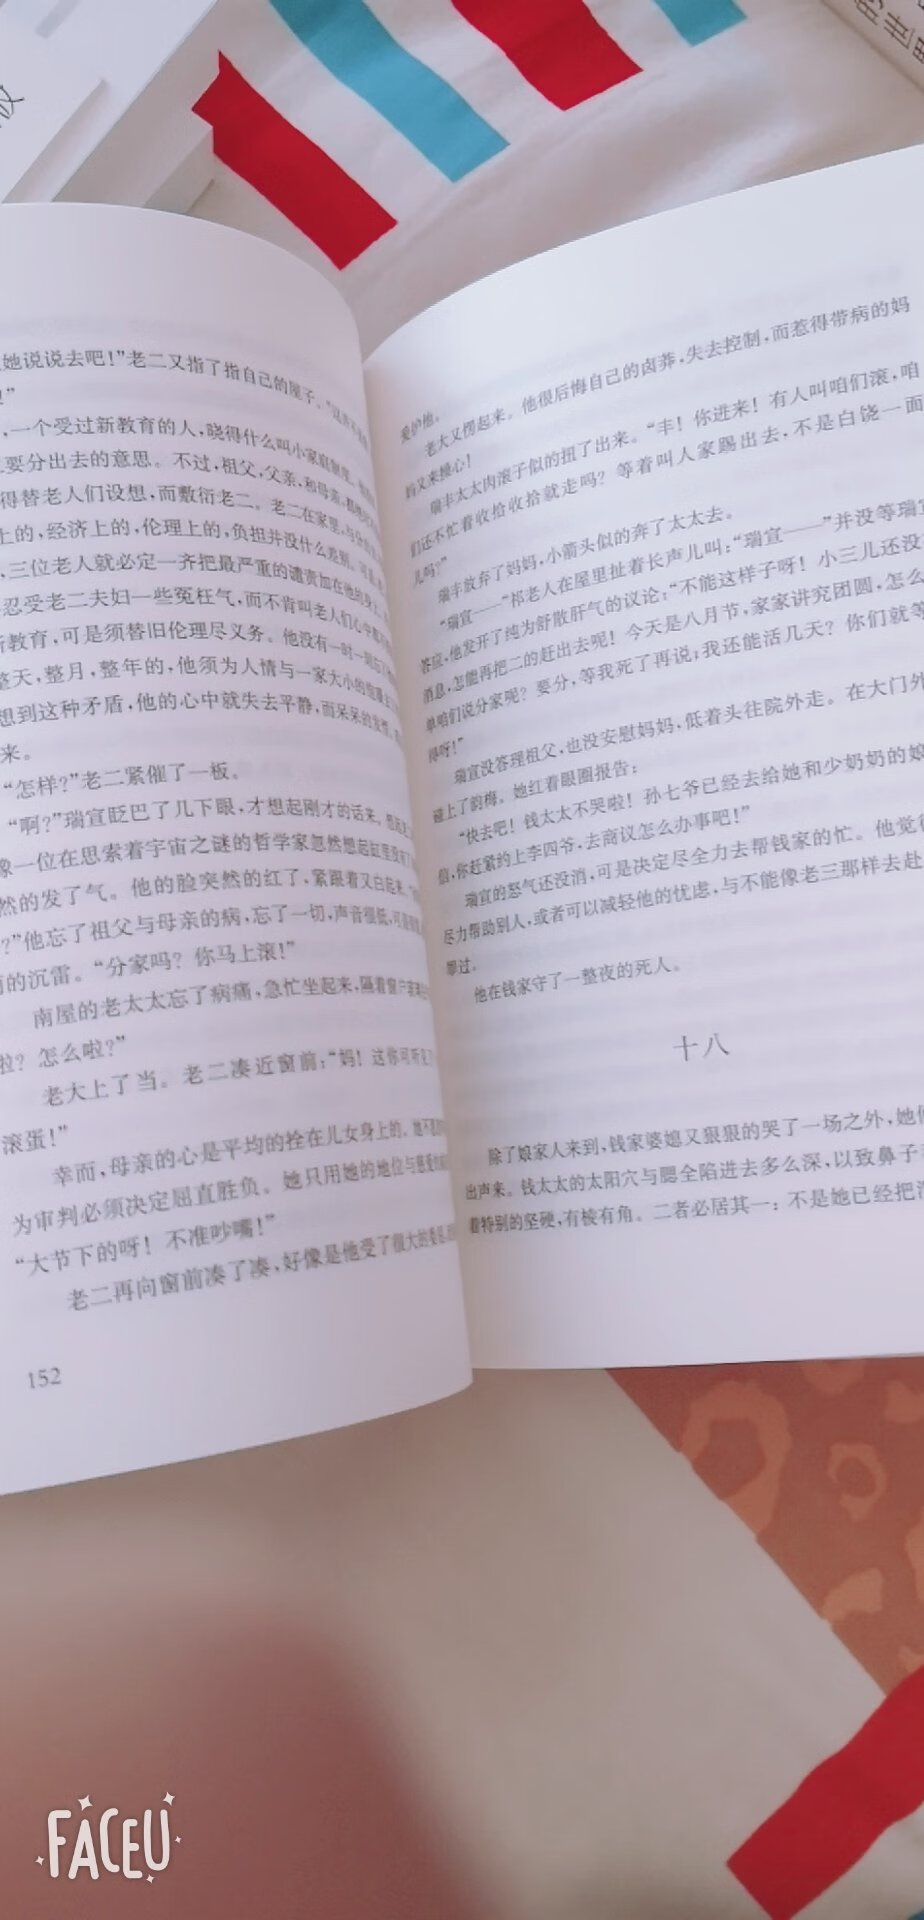 她说说去吧！”老二又指了指自己的屋子。
”
，一个受过新教育的人，晓得什么叫小家庭制度。
要分出去的意思。不过，祖父，父亲，和母亲，
得替老人们设想，而敷衍老二。老二在家里，与
上的，经济上的，伦理上的，负担并没什么差别。可是，
，三位老人就必定一齐把最严重的谴责加在他的身上。
忍受老二夫妇一些冤枉气，而不肯叫老人们心中
新教育，可是须替旧伦理尽义务。他没有一时一刻忘了
整天，整月，整年的，他须为人情与一家大小的
想到这种矛盾，他的心中就失去平静，而呆呆的发愣。
来。
“怎样？”老二紧催了一板。
“啊？”瑞宣眨巴了几下眼，才想起刚才的话来。想起
像一位在思索着宇宙之谜的哲学家忽然想起缸里没有
然的发了气。他的脸突然的红了，紧跟着又白起来。
？”他忘了祖父与母亲的病，忘了一切，声音很低，可
的沉雷。“分家吗？你马上滚！”
南屋的老太太忘了病痛，急忙坐起来，隔着窗户
啦？怎么啦？”
老大上了当。老二凑近窗前：“妈！这你可听见了
滚蛋！”
幸而，母亲的心是平均的拴在儿女身上的。她不
为审判必须决定屈直胜负。她只用她的地位与慈爱
“大节下的呀！不准吵嘴！”
老二再向窗前凑了凑，好像是他受了很大的委屈，
152
爱护他。
老大又愣起来。他很后悔自己的卤莽，失去控制，而惹得带病的妈
妈又来操心！
瑞丰太太肉滚子似的扭了出来。“丰！你进来！有人叫咱们滚，咱
们还不忙着收拾收拾就走吗？等着叫人家踢出去，不是白饶一面
儿吗？”
瑞丰放弃了妈妈，小箭头似的奔了太太去。
“瑞宣——”祁老人在屋里扯着长声儿叫：“瑞宣——”并没等瑞宣
答应，他发开了纯为舒散肝气的议论：“不能这样子呀！小三儿还没
消息，怎能再把二的赶出去呢！今天是八月节，家家讲究团圆，怎么
单咱们说分家呢？要分，等我死了再说；我还能活几天？你们就等
得呀！”
瑞宣没答理祖父，也没安慰妈妈，低着头往院外走。在大门外
碰上了韵梅。她红着眼圈报告：
“快去吧！钱太太不哭啦！孙七爷已经去给她和少奶奶的娘
信，你赶紧约上李四爷，去商议怎么办事吧！”
瑞宣的怒气还没消，可是决定尽全力去帮钱家的忙。他觉得
尽力帮助别人，或者可以减轻他的忧虑，与不能像老三那样去赴
罪过。
他在钱家守了一整夜的死人。
十八
除了娘家人来到，钱家婆媳又狠狠的哭了一场之外，她们
出声来。钱太太的太阳穴与腮全陷进去多么深，以致鼻子
着特别的坚硬，有棱有角。二者必居其一：不是她已经把
FACEU